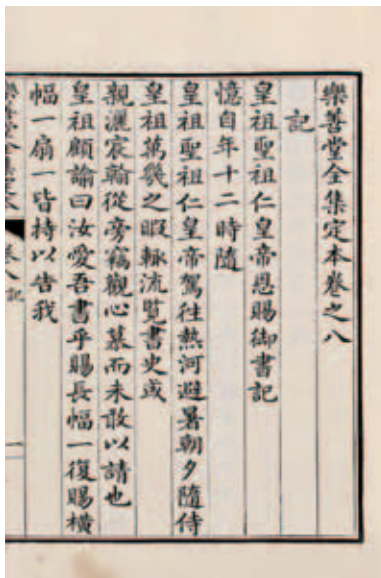 樂善堂全集定本卷之八
記
皇祖聖祖仁皇帝恩賜御書記
憶自年十二時隨
皇祖聖祖仁皇帝駕往熱河避暑朝夕隨侍
皇祖萬幾之暇輒流覽書史或
親灑宸翰從旁竊觀心慕而未敢以請也
皇祖顧諭曰汝愛吾書乎賜長幅一復賜橫
幅一扇一皆持以告我
樂善堂全集定本
卷八 記
一